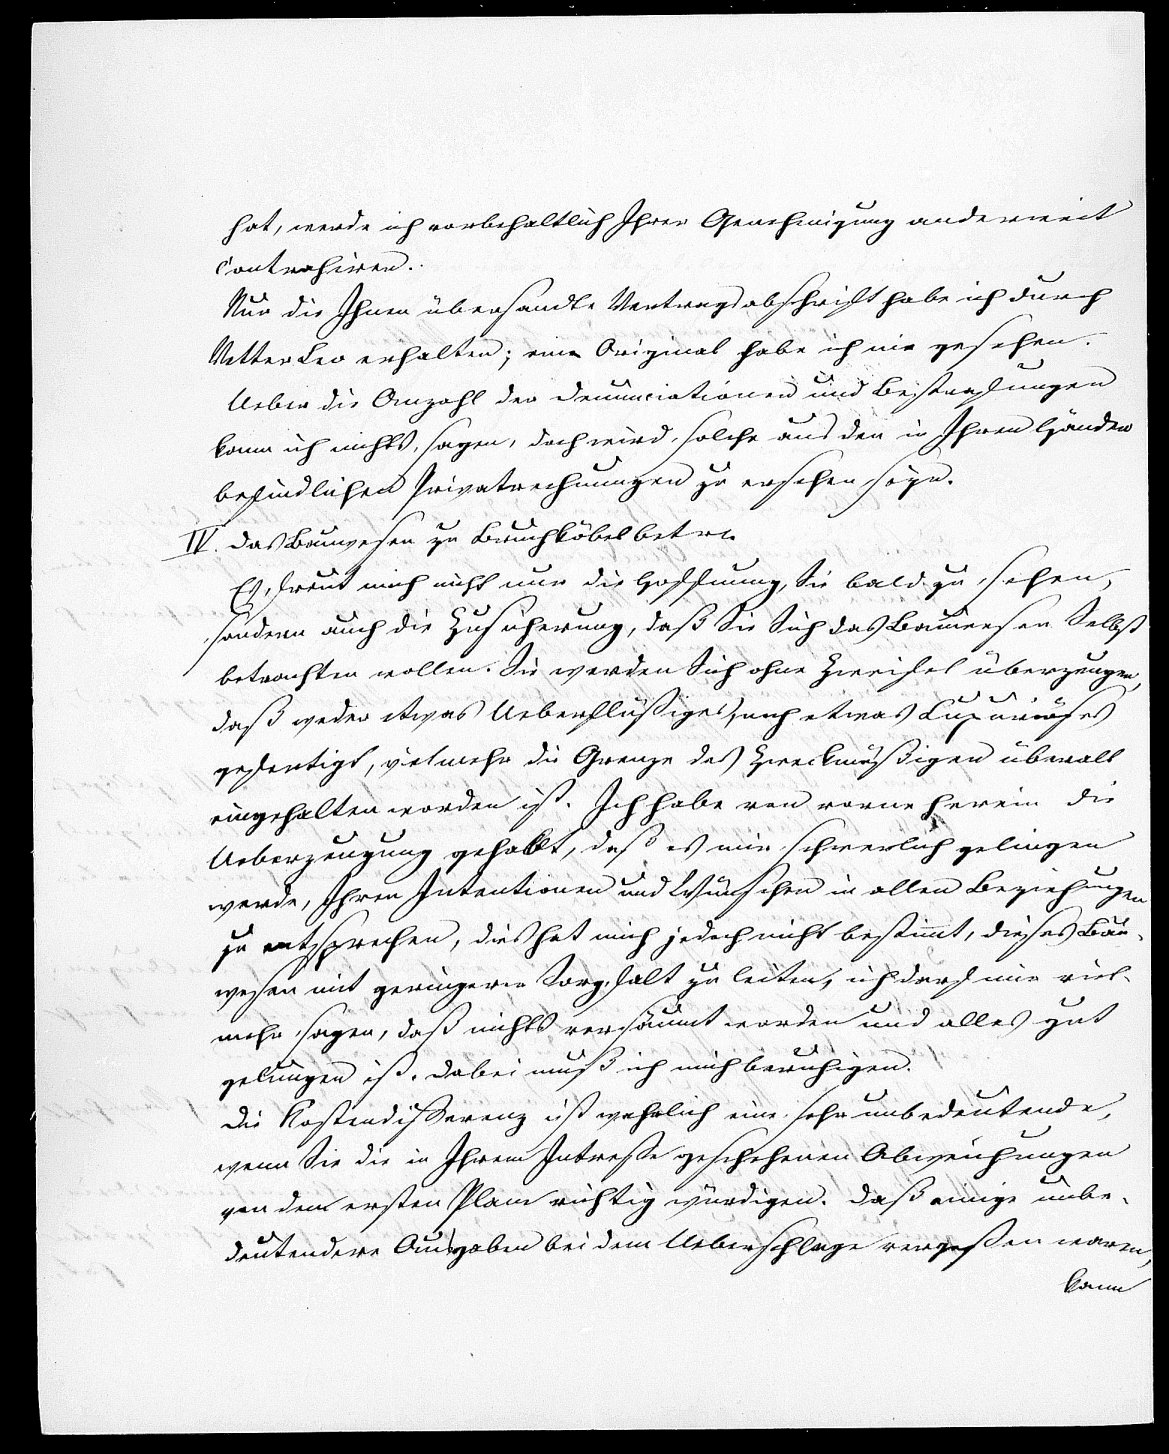 hat, werde ich vorbehaltlich Ihrer Genehmigung anderweit
contrahiren.
Nur die Ihnen übersandte Vertragsabschrift habe ich durch
Vetter Leo erhalten; ein Original habe ich nie gesehen.
Ueber die Anzahl der Denunciationen und Bestrafungen
kann ich nichts sagen, doch wird solche aus den in Ihren Händen
befindlichen Privatrechnungen zu ersehen seyn.
IV. das Bauwesen zu Bruchköbel betr.
Es freut mich nicht nur die Hoffnung, Sie bald zu sehen,
sondern auch die Zusicherung, daß Sie Sich das Bauwesen Selbst
betrachten wollen. Sie werden Sich ohne Zweifel überzeugen,
daß weder etwas Ueberflüßiges, noch etwas Luxuriöses
gefertigt, vielmehr die Grenze des Zweckmäßigen überall
eingehalten worden ist. Ich habe von vorne herein die
Ueberzeugung gehabt, daß es mir schwerlich gelingen
werde, Ihren Intentionen und Wünschen in allen Beziehungen
zu entsprechen, dies hat mich jedoch nicht bestimt, dieses Bau-
wesen mit geringerer Sorgfalt zu leiten, ich darf mir viel-
mehr sagen, daß nichts versäumt worden und alles gut
gelungen ist. Dabei muß ich mich beruhigen.
Die Kostendifferenz ist wahrlich eine sehr unbedeutende,
wenn Sie die in Ihrem Intreße geschehenen Abweichungen
von dem ersten Plane richtig würdigen. Daß einige unbe-
deutendere Ausgaben bei dem Ueberschlage vergeßen waren,
kann